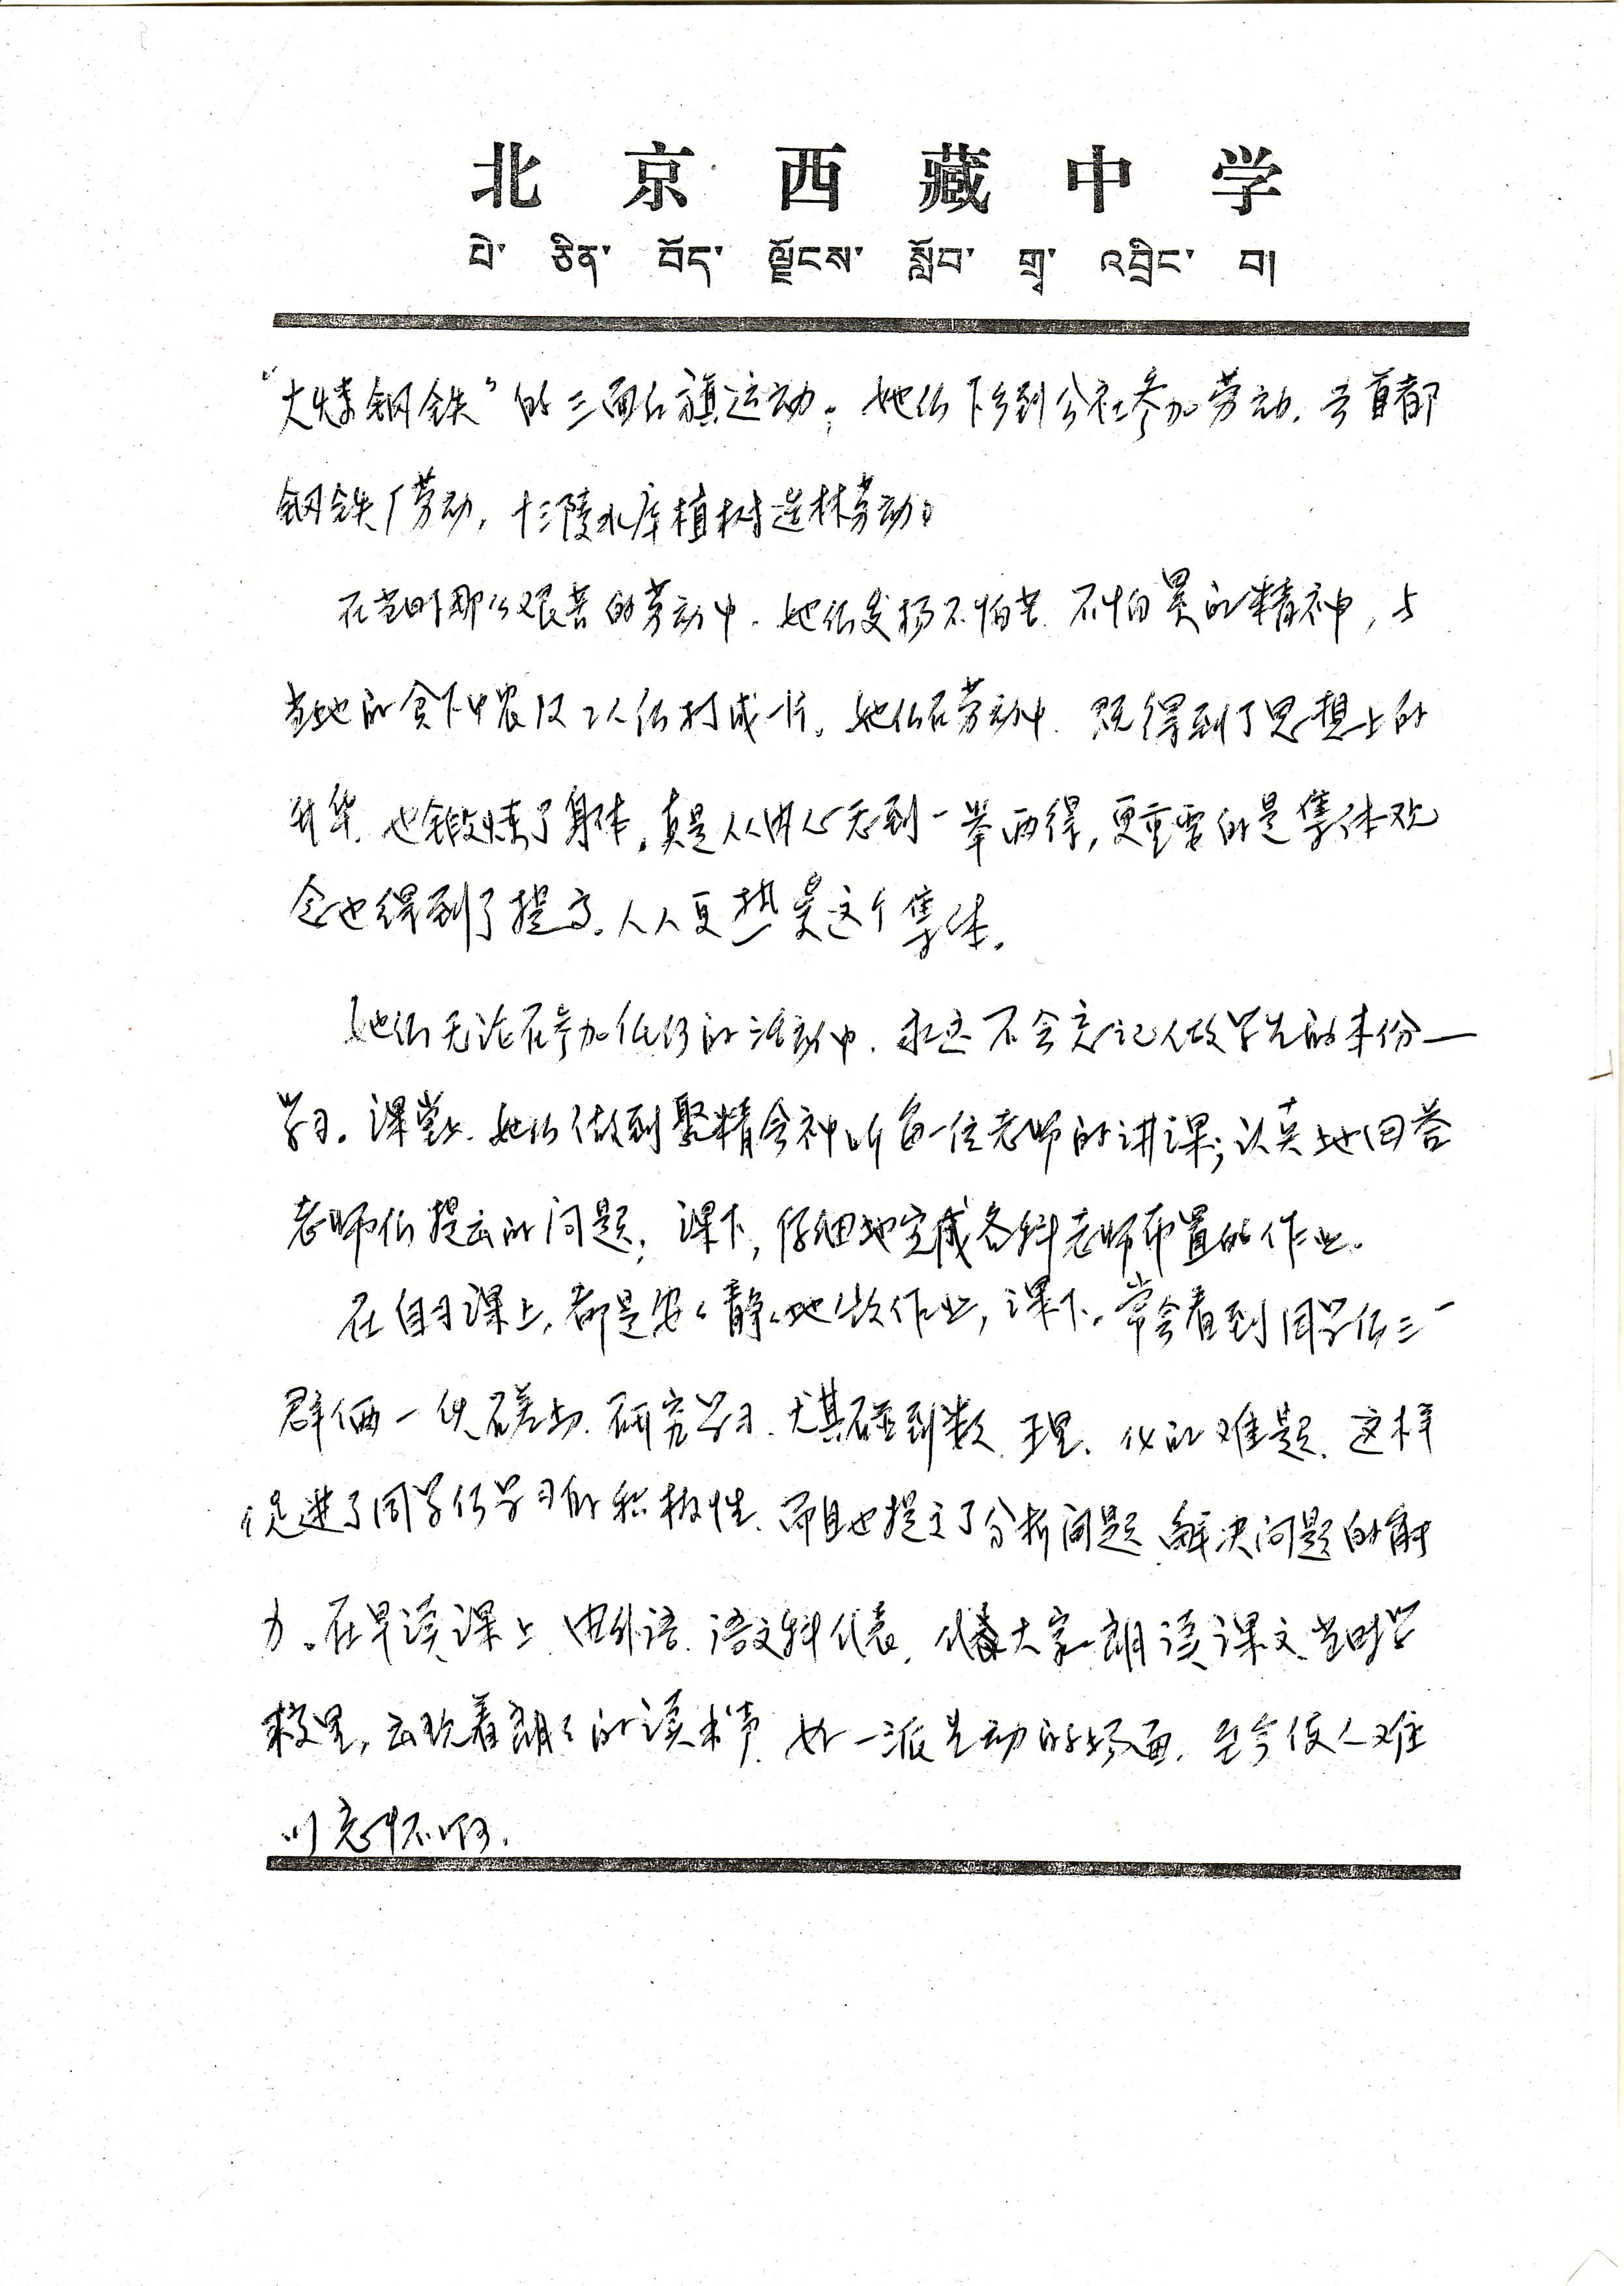 北京西藏中学
པེ་ ཅིན་ བོད་ ལྗོངས་ སློབ་ གྲྭ་ འབྲིང་ བ།
“大炼钢铁”的三面红旗运动。她们下乡到公社参加劳动，去首都
钢铁厂劳动，十三陵水库植树造林劳动。
在当时那么艰苦的劳动中，她们发扬不怕苦、不怕累的精神，与
当地的贫下中农及工人们打成一片。她们在劳动中，既得到了思想上的
升华，也锻炼了身体，真是从内心感到一举两得，更重要的是集体观
念也得到了提高。人人更热爱这个集体。
她们无论在参加任何的活动中，永远不会忘记做学生的本份—
学习。课堂上，她们做到聚精会神听每一位老师的讲课；认真地回答
老师们提出的问题；课下，仔细地完成各科老师布置的作业。
在自习课上，都是安安静静地做作业，课下，常会看到同学们三一
群俩一伙磋商、研究学习，尤其碰到数、理、化的难题，这样
促进了同学们学习的积极性，而且也提高了分析问题、解决问题的能
力。在早读课上，由外语、语文科代表，代表大家朗读课文，当时学
校里，出现着朗朗的读书声，好一派生动的场面，至今使人难
以忘怀啊。